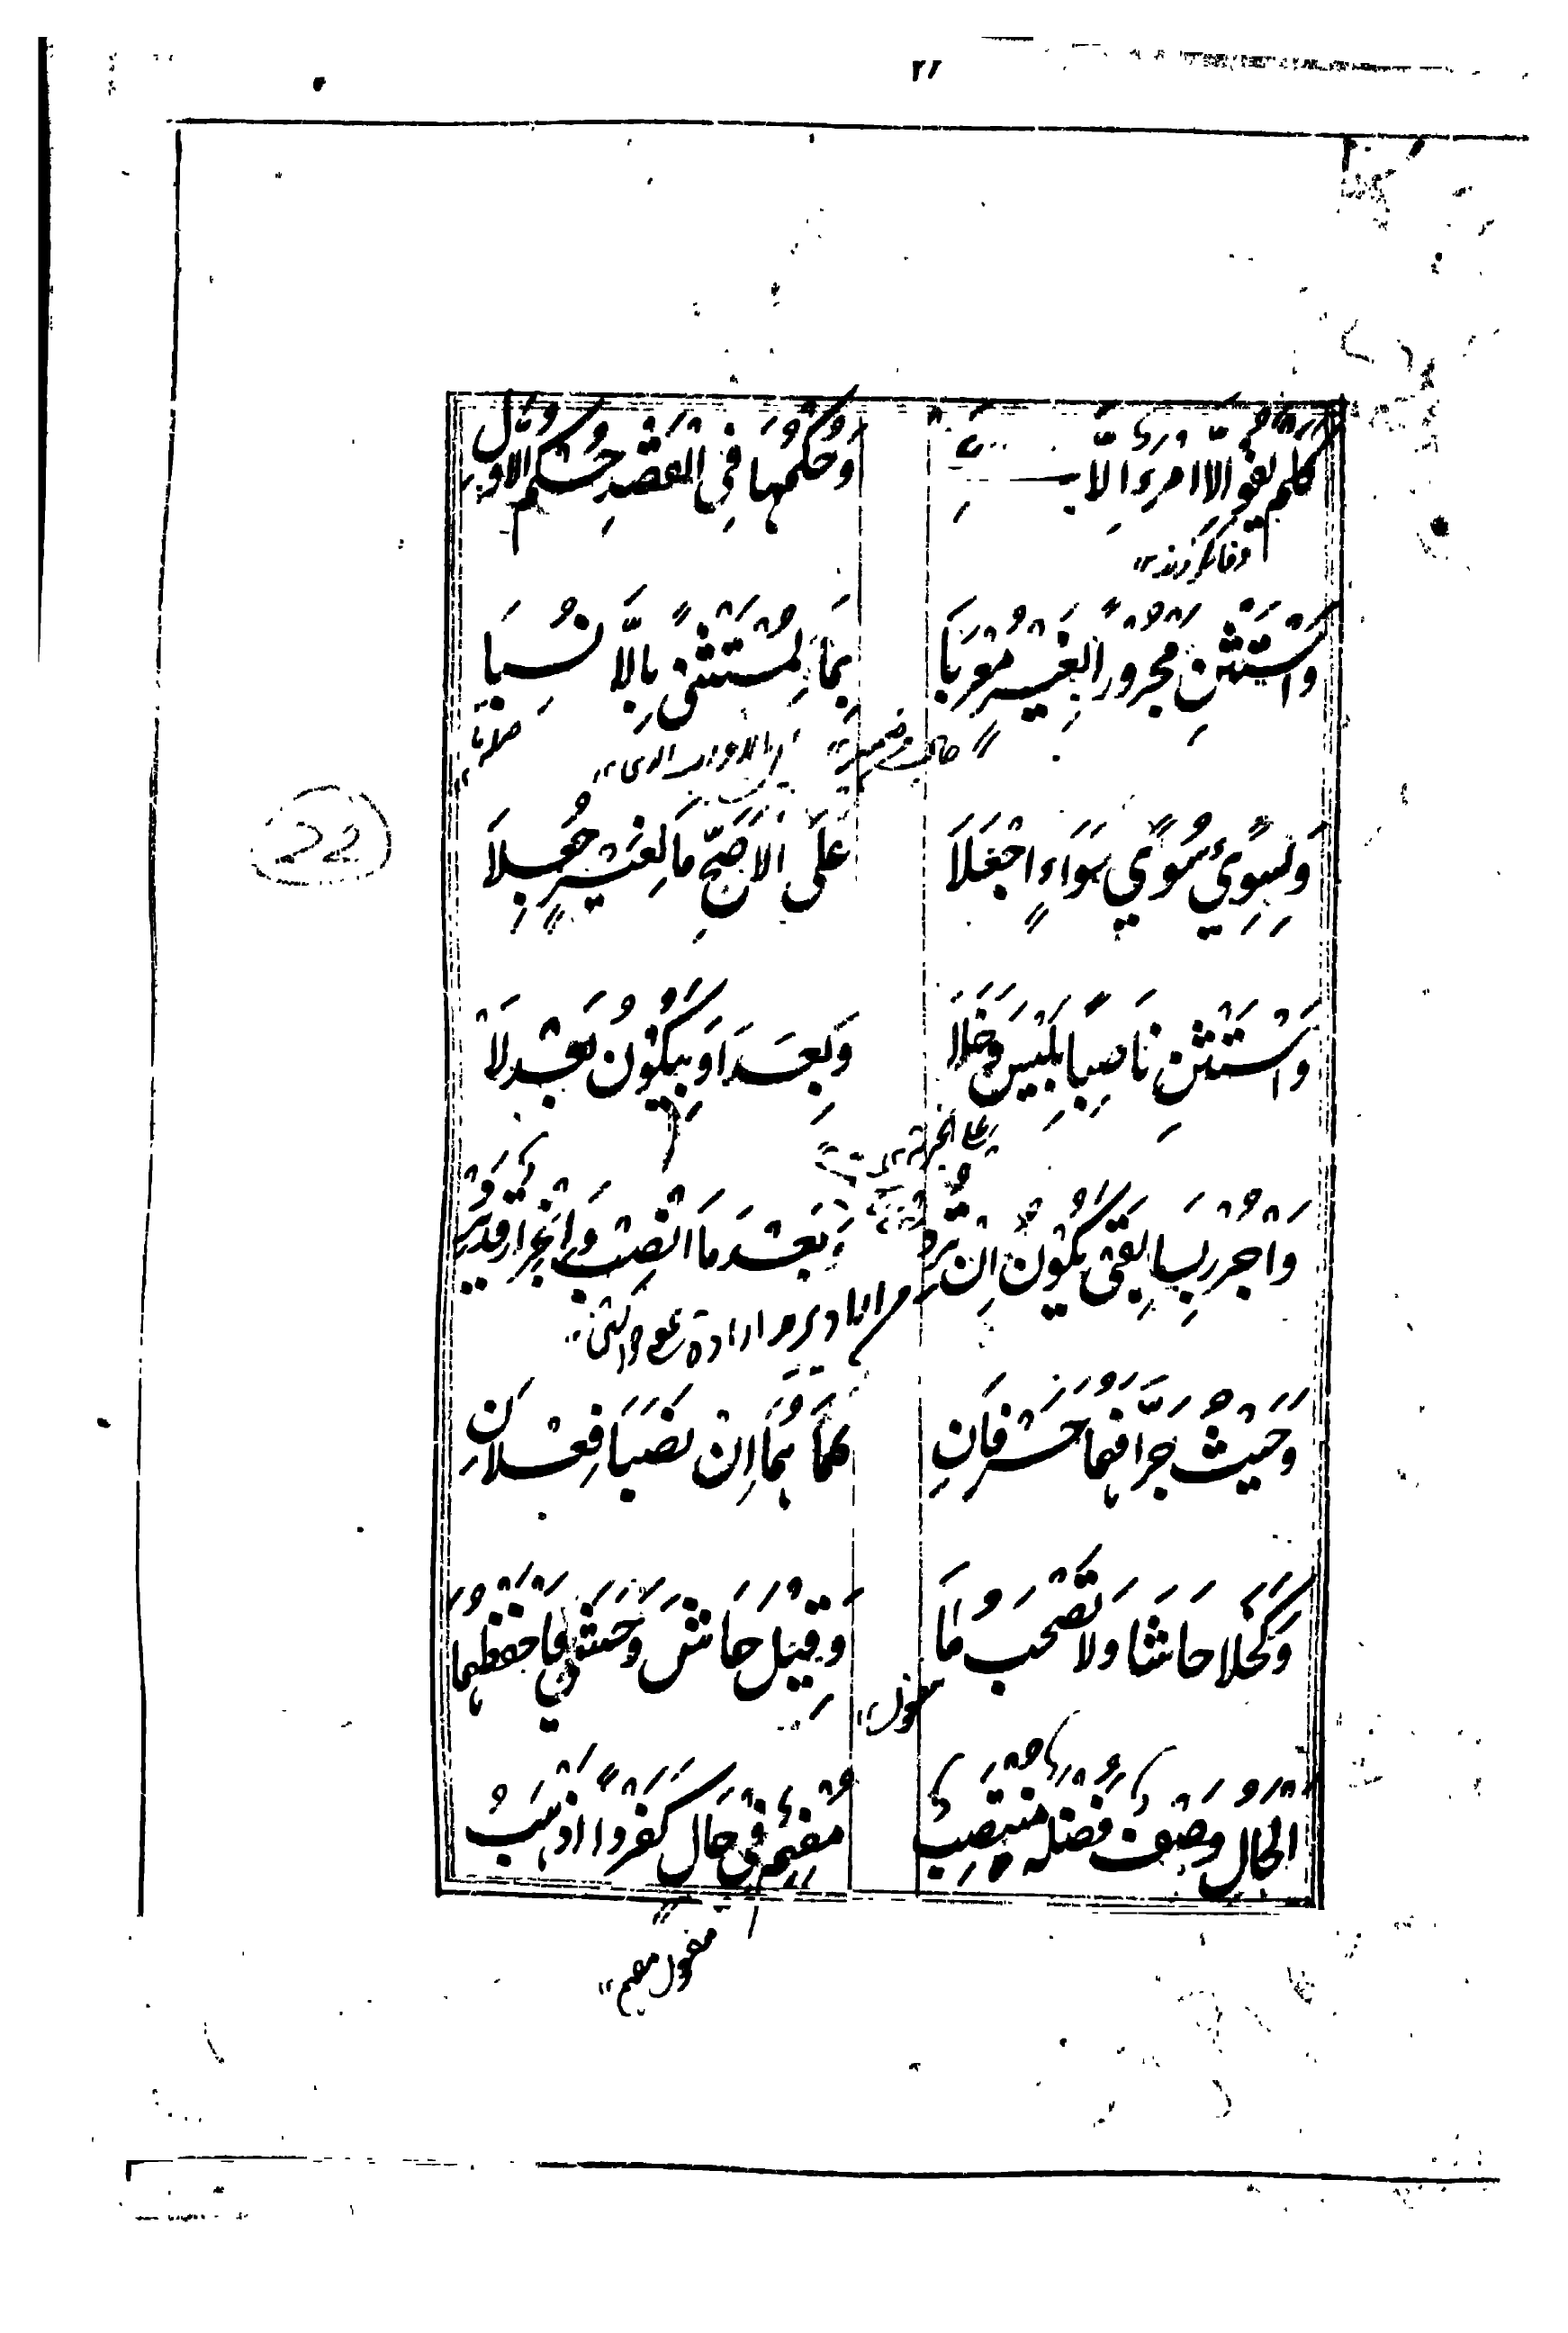 ٢١
كَلَمْ يَفُوا إِلَّا امْرُءٌ إِلَّا وَحُكْمُهَا فِي الْقَصْدِ حُكْمُ الْأَوَّلِ
وَاسْتَثْنِ مَجْرُورًا بِغَيْرٍ مُعْرَبَا بِمَا لِمُسْتَثْنًى بِإِلَّا نُسِبَا
22
وَلِسِوًى سُوًى سَوَاءٍ اجْعَلَا عَلَى الْأَصَحِّ مَا لِغَيْرٍ جُعِلَا
وَاسْتَثْنِ نَاصِبًا بِلَيْسَ وَخَلَا وَبِعَدَا وَبِيَكُونُ بَعْدَ لَا
وَاجْرُرْ بِسَابِقَيْ يَكُونُ إِنْ تُرِدْ وَبَعْدَ مَا انْصِبْ وَانْجِرَارٌ قَدْ يَرِدْ
وَحَيْثُ جَرَّا فَهُمَا حَرْفَانِ كَمَا هُمَا إِنْ نَصَبَا فِعْلَانِ
وَكَخَلَا حَاشَا وَلَا تَصْحَبُ مَا وَقِيلَ حَاشَ وَحَشَى فَاحْفَظْهُمَا
مفعول
الْحَالُ وَصْفٌ فَضْلَةٌ مُنْتَصِبُ مُفْهِمُ فِي حَالِ كَفَرْدًا أَذْهَبُ
مفعول مفهم